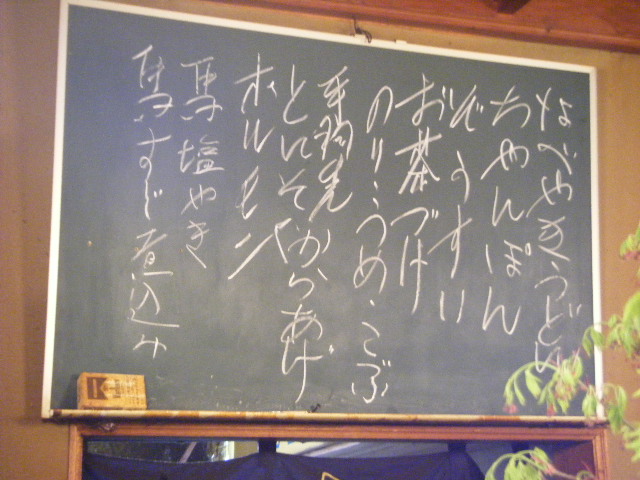 なべやきうどん
ちゃんぽん
ぞうすい
お茶づけ
のり・うめ・こぶ
手羽先
とんそく からあげ
ホルモン
馬塩やき
馬すじ煮込み